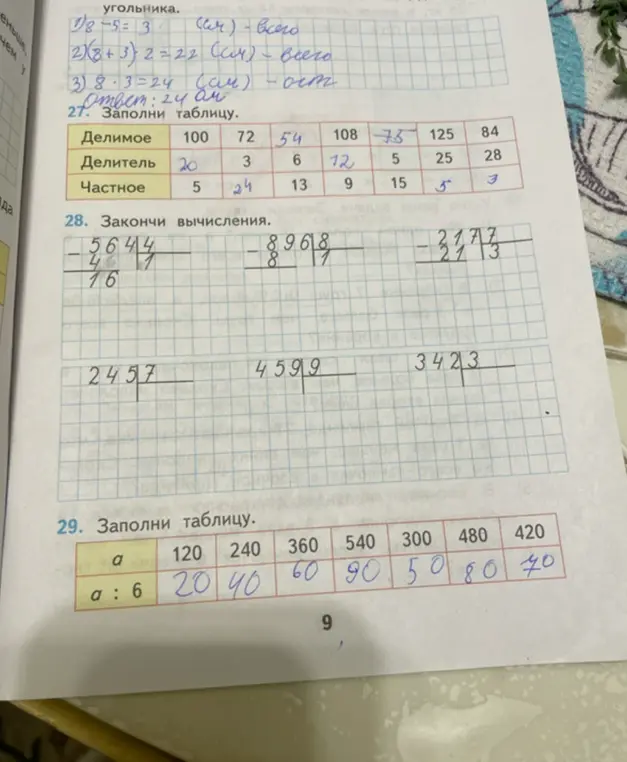 угольника.
1) 8 - 5 = 3 (см) - всего
2) (8 + 3) · 2 = 22 (см) - всего
3) 8 · 3 = 24 (см) -
Ответ: 24 см
27. Заполни таблицу.
Делимое 100 72 54 108 75 125 84
Делитель 20 3 6 12 5 25 28
Частное 5 24 13 9 15 5 3
28. Закончи вычисления.
564 4 896 8 217 7
4 1 8 1 21 3
16
245 7 459 9 342 3
29. Заполни таблицу.
a 120 240 360 540 300 480 420
a : 6 20 40 60 90 50 80 70
9